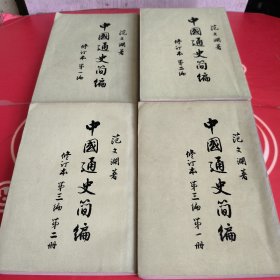 范文澜著
中國通史简编
修订本 第一编
范文澜著
中國通史简编
修订本 第二编
范文澜著
中國通史简编
修订本 第三编 第二册
范文澜著
中國通史简编
修订本 第三编 第一册